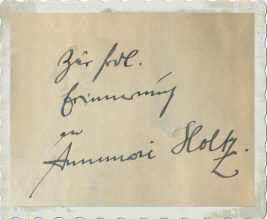 Zur frdl.
Erinnerung
an
Annemarie Holtz.